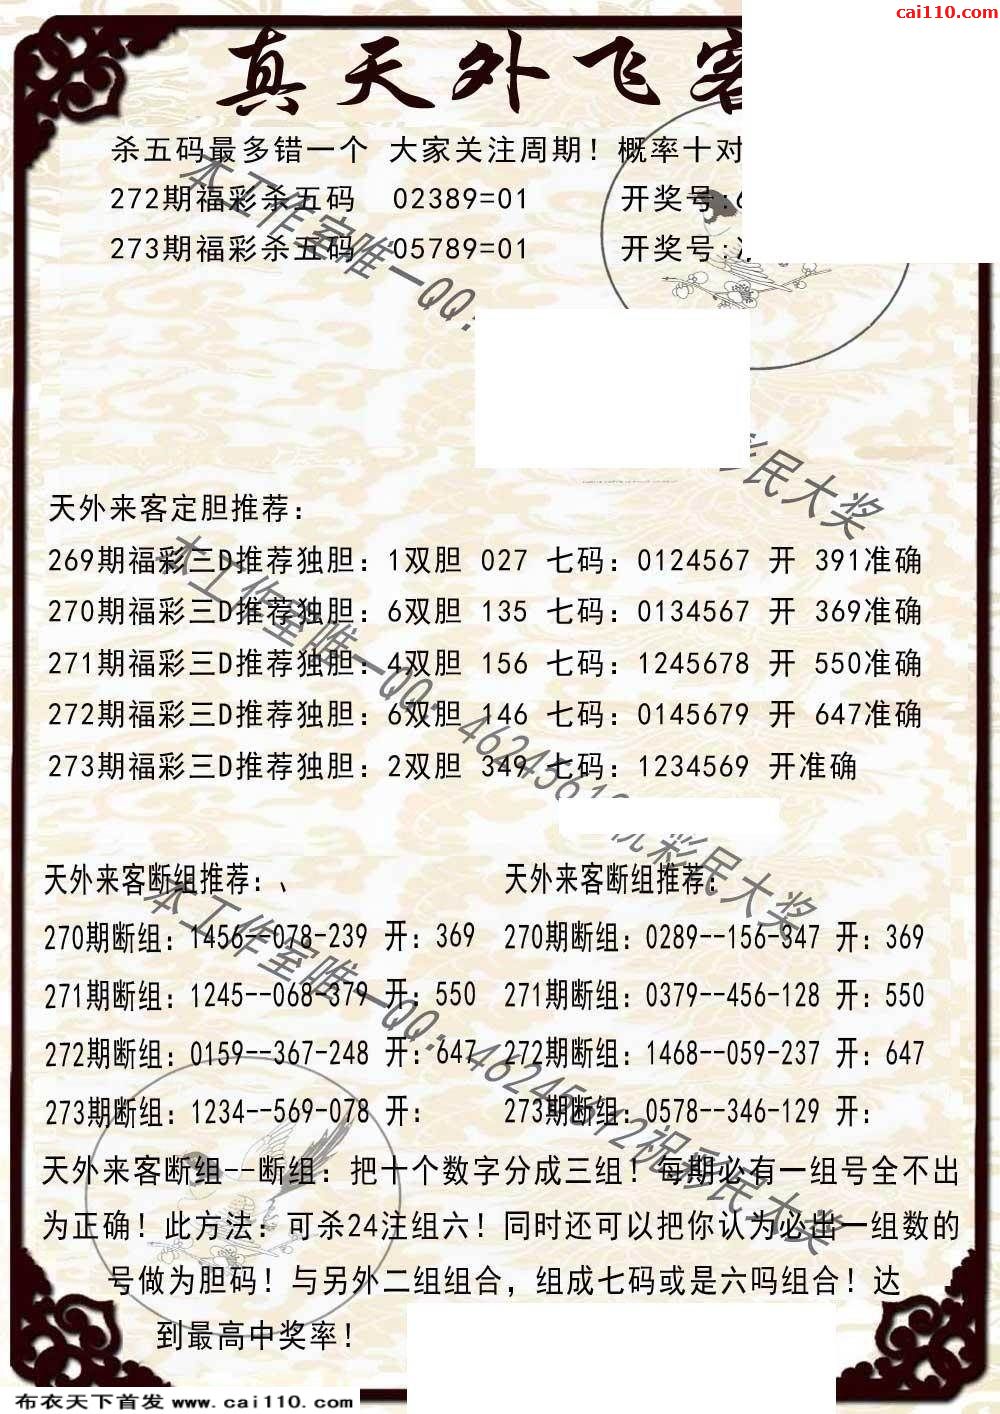 cai110.com
真天外飞客
杀五码最多错一个 大家关注周期！概率十对
272期福彩杀五码 02389=01 开奖号:
273期福彩杀五码 05789=01 开奖号:
本工作室唯一QQ:
彩民大奖
天外来客定胆推荐：
269期福彩三D推荐独胆：1双胆 027 七码：0124567 开 391准确
270期福彩三D推荐独胆：6双胆 135 七码：0134567 开 369准确
271期福彩三D推荐独胆：4双胆 156 七码：1245678 开 550准确
272期福彩三D推荐独胆：6双胆 146 七码：0145679 开 647准确
273期福彩三D推荐独胆：2双胆 349 七码：1234569 开准确
本工作室唯一QQ：46245612祝彩民大奖
天外来客断组推荐：、 天外来客断组推荐：
270期断组：1456--078-239 开：369 270期断组：0289--156-347 开：369
271期断组：1245--068-379 开：550 271期断组：0379--456-128 开：550
272期断组：0159--367-248 开：647 272期断组：1468--059-237 开：647
273期断组：1234--569-078 开： 273期断组：0578--346-129 开：
本工作室唯一QQ：46245612祝彩民大奖
天外来客断组--断组：把十个数字分成三组！每期必有一组号全不出
为正确！此方法：可杀24注组六！同时还可以把你认为必出一组数的
号做为胆码！与另外二组组合，组成七码或是六吗组合！达
到最高中奖率！
布衣天下首发 www.cai110.com